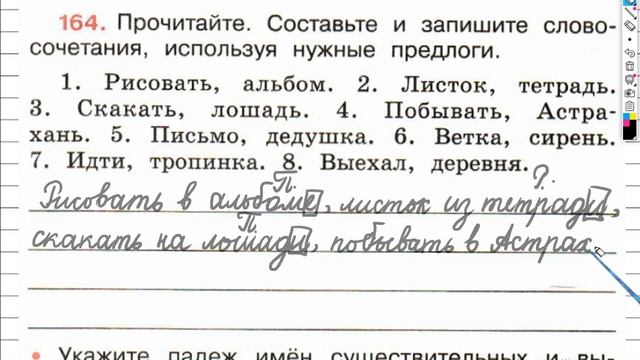 164. Прочитайте. Составьте и запишите слово-
сочетания, используя нужные предлоги.
1. Рисовать, альбом. 2. Листок, тетрадь.
3. Скакать, лошадь. 4. Побывать, Астра-
хань. 5. Письмо, дедушка. 6. Ветка, сирень.
7. Идти, тропинка. 8. Выехал, деревня.
П. Р.
Рисовать в альбоме, листок из тетради,
П.
скакать на лошади, побывать в Астрах
• Укажите падеж имён существительных и вы-